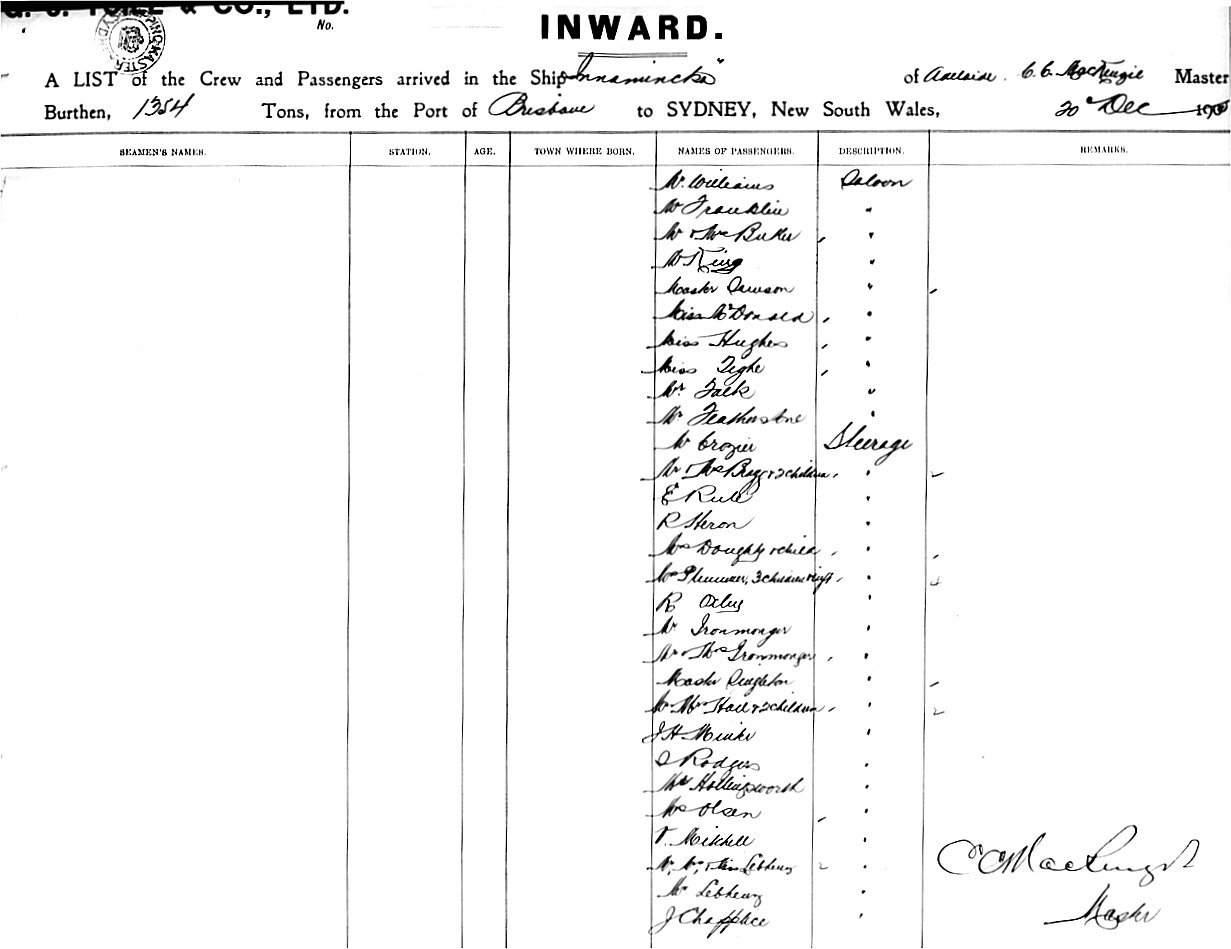 & CO., LTD.
No.
INWARD.
A LIST of the Crew and Passengers arrived in the Ship "Innamincka" of Adelaide. C. C. MacKenzie Master
Burthen, 1354 Tons, from the Port of Brisbane to SYDNEY, New South Wales, 20th Dec 190
SEAMEN'S NAMES. STATION. AGE. TOWN WHERE BORN. NAMES OF PASSENGERS. DESCRIPTION. REMARKS.
Mr. Williams Saloon
Mr Franklin "
Mr & Mrs "
Mr King "
Master Dawson "
Miss McDonald "
Miss Hughes "
Miss Tighe "
Mr. Falk "
Mr Featherstone "
Mr Crozier Steerage
Mr & Mrs Bragg & 2 children "
E Rule "
R Heron "
Mrs Doughty & child "
Mrs Plummer, 3 children & inft "
R Oxley "
Mr Ironmonger "
Mr & Mrs Ironmonger "
Master Singleton "
Mr Mrs Hall & 2 children "
J H "
Rodgers "
Hollingsworth "
Mrs Olsen "
V. Mitchell "
Mr, Mrs, & Miss "
Mr "
J "
C C MacKenzie
Master